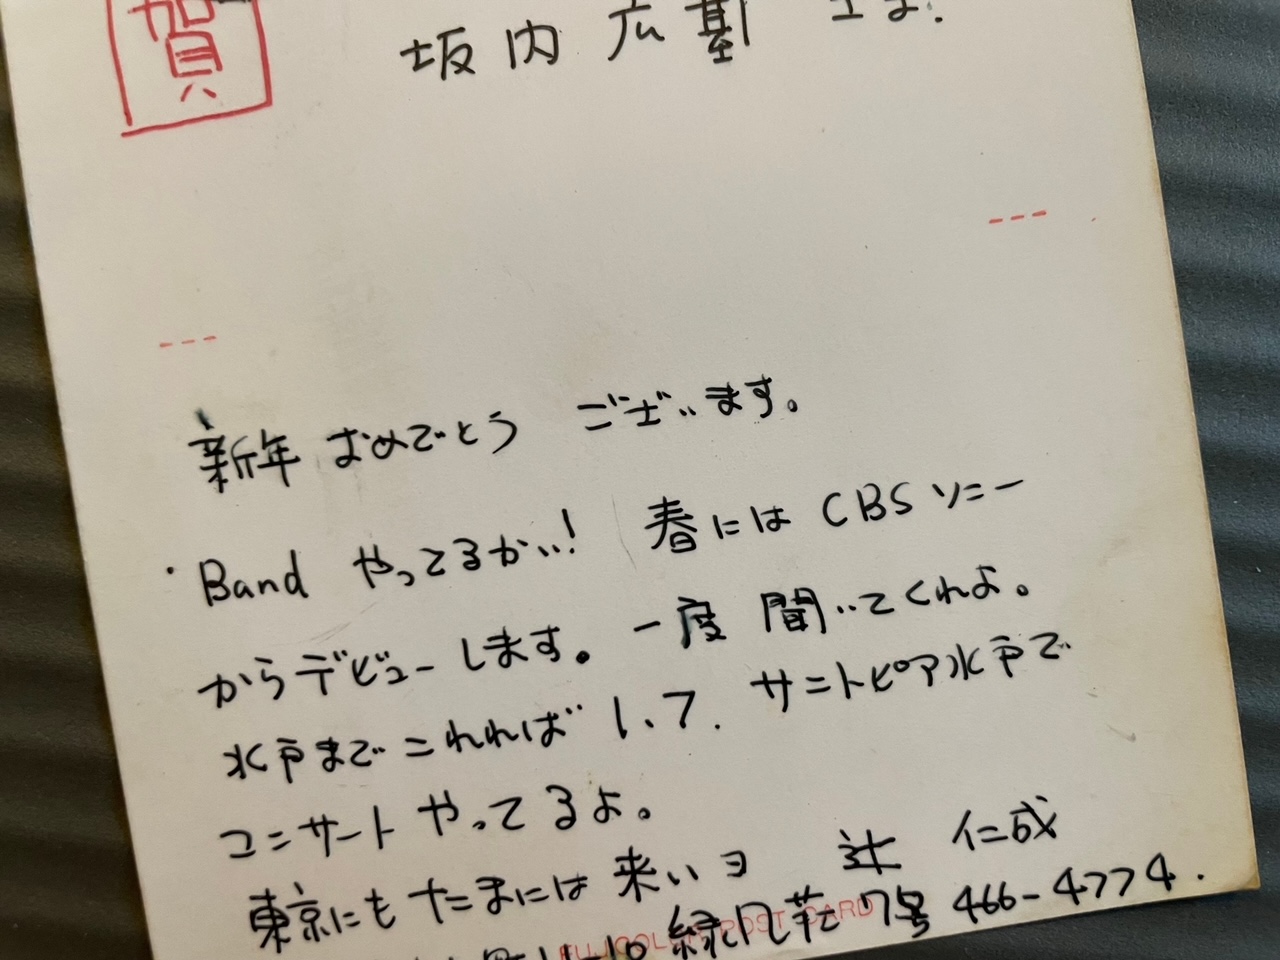 賀
坂内 広基 さま.
新年 おめでとう ございます。
・Band やってるかい! 春には CBSソニー
からデビューします。一度 聞いてくれよ。
水戸まで これれば 1、7. サントピア水戸で
コンサートやってるよ。
東京にも たまには 来いヨ 辻 仁成
緑風荘 7号 466-4774.
FUJICOLOR POST CARD